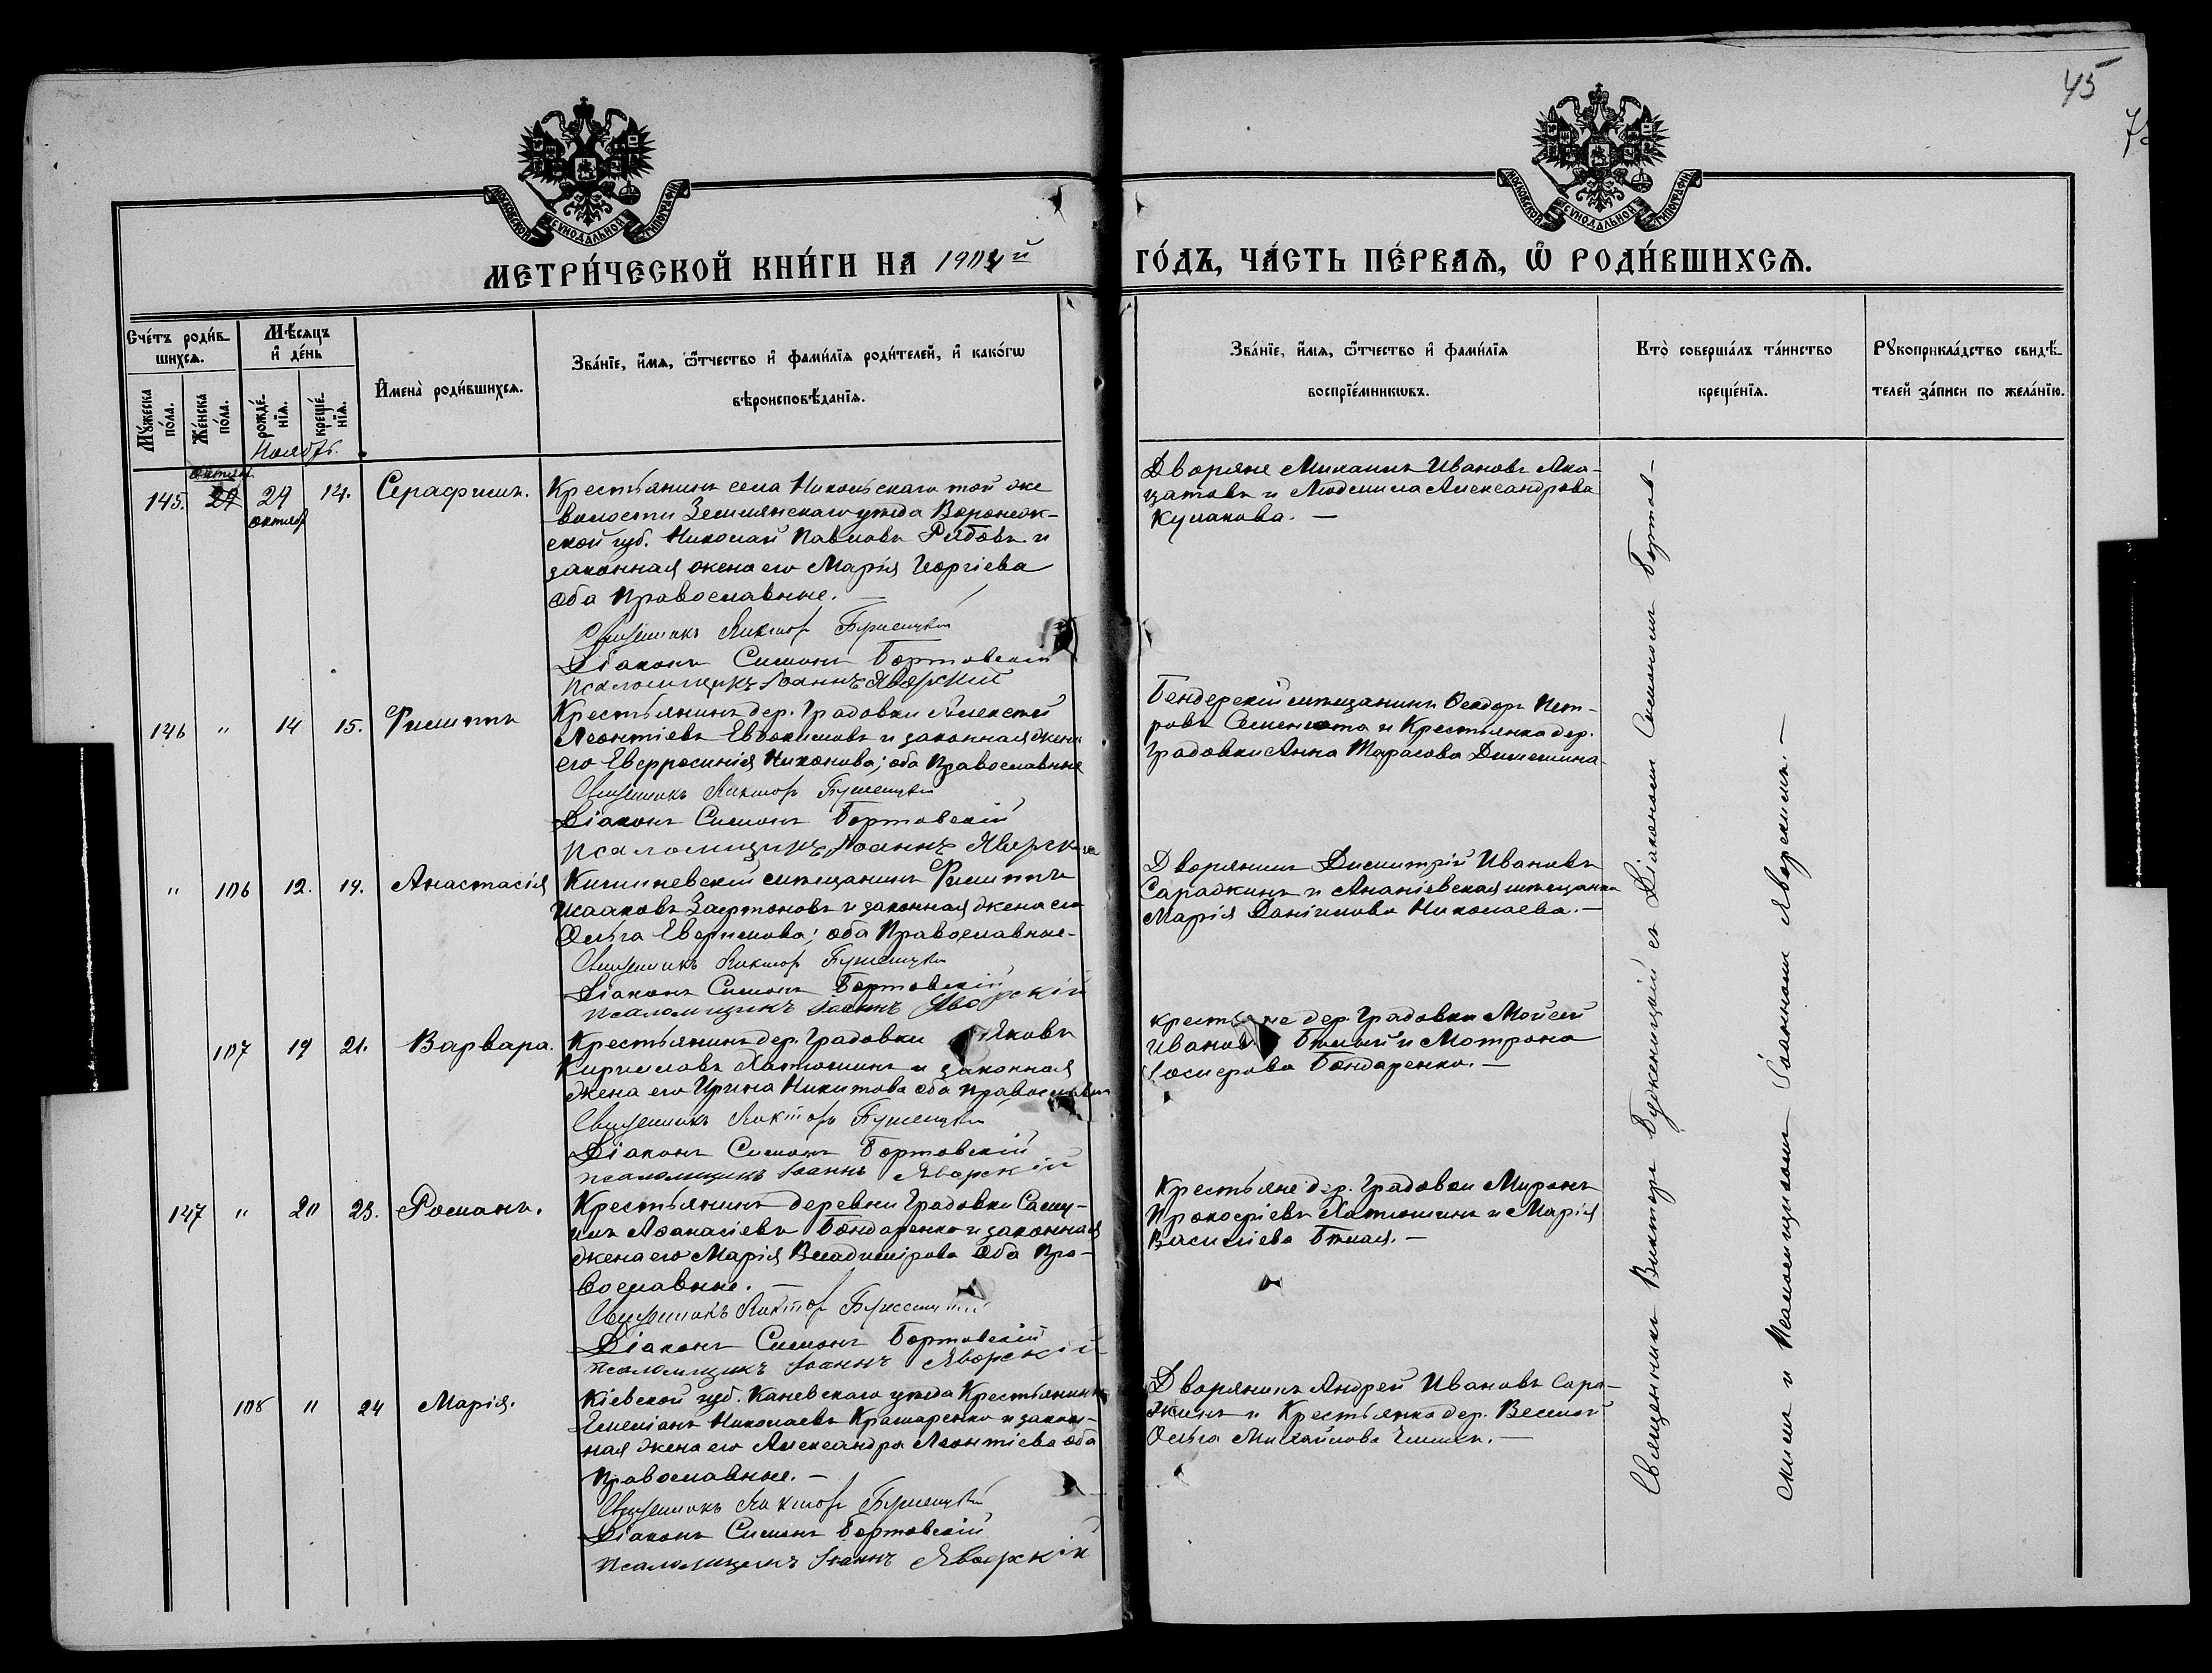 45
МОСКОВСКОЙ СѴНОДАЛЬНОЙ ТИПОГРАФІИ
МОСКОВСКОЙ СѴНОДАЛЬНОЙ ТИПОГРАФІИ
МЕТРИ́ЧЕСКОЙ КНИ́ГИ НА 1904й
ГО́ДЪ, ЧА́СТЬ ПЕ́РВАѦ, Ѡ РОДИ́ВШИХСѦ.
Сче́тъ роди́в-
шихсѧ.
Мꙋ́жеска по́ла.
Же́нска по́ла.
Мѣ́сяцъ
и де́нь
рожде́нїѧ.
креще́нїѧ.
Имена̀ роди́вшихсѧ.
Зва́нїе, и́мѧ, ѻ҆́тчество и҆ фами́лїѧ роди́телей, и҆ како́гѡ
вѣроисповѣ́данїѧ.
Зва́нїе, и́мѧ, ѻ҆́тчество и҆ фами́лїѧ
воспрїе́мникѡвъ.
Кто̀ соверша́лъ та́инство
креще́нїѧ.
Рꙋкоприкла́дство свидѣ́-
телей за́писи по жела́нїю.
Ноябрь.
145. 29 14. Серафимъ.
октябр
Крестьянинъ села Никольскаго той же
волости Землянскаго уѣзда Воронеж-
ской губ. Николай Павловъ и
законная жена его Марія Георгіева
оба Православные. —
Священникъ Викторъ
Діаконъ Симонъ Бортовскій
Псаломщикъ Іоаннъ Яворскій
Дворяне Михаилъ Ивановъ
и Людмила Александрова
Кулакова. —
146 " 14 15. Филиппъ
Крестьянинъ дер. Градовки Алексѣй
Леонтіевъ Евдокимовъ и законная жена
его Евфросинія Никонова; оба Православные
Священникъ Викторъ
Діаконъ Симонъ Бортовскій
Псаломщикъ Іоаннъ Яворскій
Бендерскій мѣщанинъ Ѳеодоръ Пет-
ровъ и Крестьянка дер.
Градовки Анна Тарасова
" 106 12. 19. Анастасія
Кишиневскій мѣщанинъ Филиппъ
Исааковъ и законная жена его
Ольга; оба Православные.
Священникъ Викторъ
Діаконъ Симонъ Бортовскій
Псаломщикъ Іоаннъ Яворскій
Дворянинъ Димитрій Ивановъ
Саражинъ и Ананіевская мѣщанка
Марія Даніилова Николаева. —
107 19 21. Варвара.
Крестьянинъ дер. Градовки Яковъ
Кирилловъ Хатюшинъ и законная
жена его Ирина Никитова оба православн
Священникъ Викторъ
Діаконъ Симонъ Бортовскій
псаломщикъ Іоаннъ Яворскій
крестьяне дер. Градовки Мойсей
Ивановъ Бѣлый и Матрона
Іосифова Бондаренко. —
147 " 20 23. Романъ.
Крестьянинъ деревни Градовки Саму-
илъ Аѳанасіевъ Бондаренко и законная
жена его Марія Владимірова Оба Пра-
вославные. —
Священникъ Викторъ
Діаконъ Симонъ Бортовскій
псаломщикъ Іоаннъ Яворскій
Крестьяне дер. Градовки Миронъ
Прокофіевъ Хатюшинъ и Марія
Василіева Бѣлая. —
108 " 24 Марія.
Кіевской губ. Каневскаго уѣзда Крестьянинъ
Емеліанъ Николаевъ Крамаренко и закон-
ная жена его Александра Леонтіева оба
Православные. —
Священникъ Викторъ
Діаконъ Симонъ Бортовскій
Псаломщикъ Іоаннъ Яворскій
Дворянинъ Андрей Ивановъ Сара-
жинъ и Крестьянка дер. Веселой
Ольга Михайлова
Священникъ Викторъ съ Діакономъ Симономъ Бортов-
скимъ и Псаломщикомъ Іоанномъ Яворскимъ. —